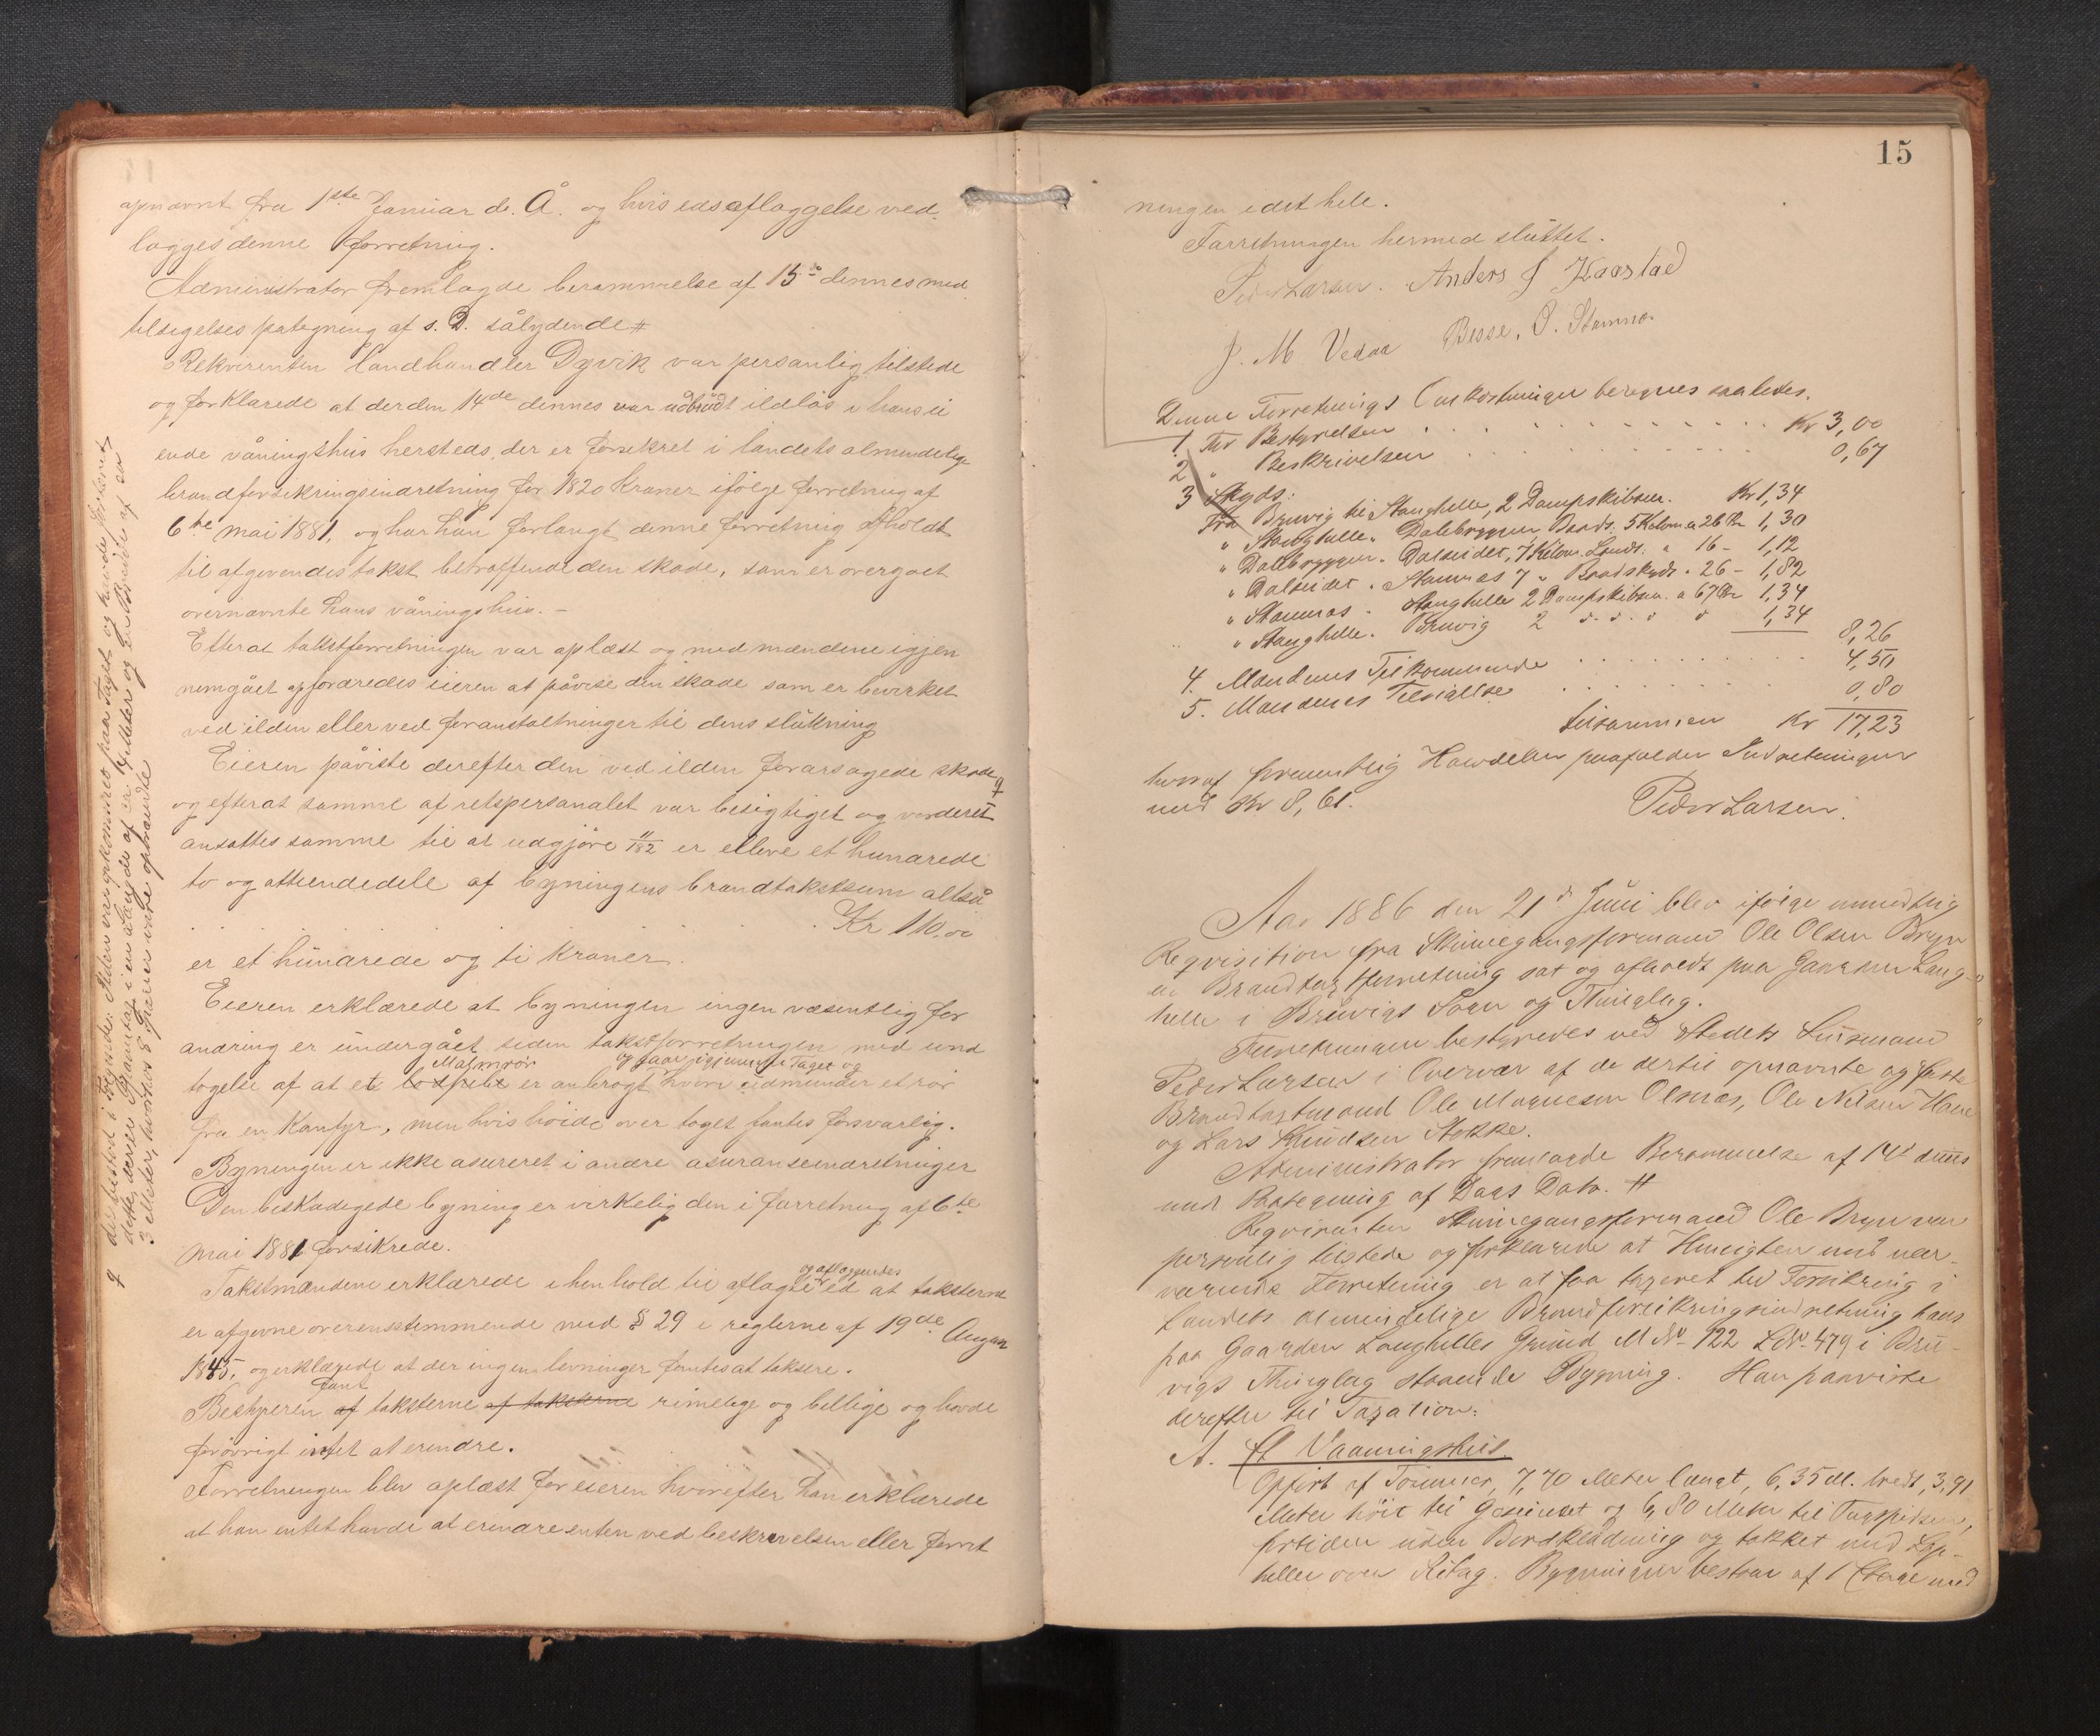 opnævnt fra 1ste Januar d. Å. og hvis edsaflæggelse ved
lægges denne forretning.
Administrator fremlagde berammelse af 15de dennes med
tilsigelses påtegning af s. D. sålydende #
Rekvirenten landhandler Dyvik var personlig tilstede
og forklarede at der den 14de dennes var udbrudt ildløs i hans ei
ende våningshus hersteds, der er forsikret i landets almindelige
brandforsikringsindretning for 1820 Kroner ifølge forretning af
6te mai 1881, og har han forlangt denne forretning afholdt
til afgivendes takst betræffende den skade, som er overgået
overnævnte hans våningshus. -
Efterat takstforretningen var oplæst og med mændene igjen
nemgået opfordredes eieren at påvise den skade som er bevirket
ved ilden eller ved foranstaltninger til dens slukning
Eieren påviste derefter den ved ilden forårsagede skade
og efterat samme af retspersonalet var besigtiget og vurderet
ansattes samme til at udgjøre 11/182 er elleve et hundrede
to og ottiendedele af bygningens brandtakstsum altså
Kr 110,00
er et hundrede og ti kroner.
Eieren erklærede at bygningen ingen væsentlig for
andring er undergået siden takstforretningen med und
Malmrør og gaar igjennem Taget og
tagelse af at et er anbragt hvori udmunder et rør
fra en Kamfyr, men hvis høide over taget fantes forsvarlig.
Bygningen er ikke asureret i andre asuranseindretninger
Den beskadigede bygning er virkelig den i forretning af 6te
mai 1881 forsikrede.
og aflæggendes
Takstmændene erklærede i henhold til aflagte ed at taksterne
er afgivne overensstemmende med § 29 i reglerne af 19de August
1845, og erklærede at der ingen levninger fantes at taksere.
fant
Bestyreren af taksterne af taksterne rimelige og billige og havde
forøvrigt intet at erindre.
Forretningen blev oplæst for eieren hvorefter han erklærede
at han intet havde at erindre enten ved beskrivelsen eller forret
der bestod i Følgende: Ilden var opkommen paa Taget og havde fortæret
dette derved Spærretag i en Længde af er 14 Meter og en Bredde af ca
3 Meter, hvorhos 8 Spærrer vare opbrændte
15
ningen i det hele.
Forretningen hermed sluttet.
Peder Larsen. Anders J Kaarstad
J. M Vedaa Besse. O. Stamnes
Denne Forretnings Omkostninger beregnes saaledes.
1. For Bestyrelsen Kr 3,00
2 " Beskrivelsen 0,67
3 Skyds:
Fra Bruvig til Stanghelle, 2 Dampskibsm. Kr 1,34
" Stanghelle " Dalebryggen, Baads. 5 Kilom a 26 Øre 1,30
" Dalebryggen " Dalseidet, 7 Kilom. Lands. " 16 - 1,12
" Dalseidet " Stamnes 7 " Baadskyds " 26 - 1,82
" Stamnes " Stanghelle 2 Dampskibsm. a 67 Øre 1,34
" Stanghelle " Bruvig 2 d. d. d d 1,34
8,26
4. Mændenes Tilkommende 4,50
5. Mændenes Tilsigelse 0,80
tilsammen Kr 17,23
hvoraf Hovdelen paafalder Indretningen
med Kr 8,61.
Peder Larsen.
Aar 1886 den 21de Juni blev ifølge mundtlig
Reqvisition fra Skinnegangsformand Ole Olsen Bryn
en Brandtaxtforretning sat og afholdt paa Gaarden Lang-
helle i Bruvigs Sogn og Thinglag.
Forretningen bestyredes ved Stedets Lensmand
Peder Larsen i Overvær af de dertil opnævnte og faste
Brandtaxtmænd Ole Magnesen Olsnes, Ole Nilsen Hane
og Lars Knudsen Stokke.
Administrator fremlagde Berammelse af 14de dennes
med Paategning af Dags Dato. #
Reqvirenten Skinnegangsformand Ole Bryn var
personlig tilstede og forklarede at Hensigten med nær-
værende Forretning er at faa taxeret til Forsikring i
Landets Almindelige Brandforsikringsindretning hans
paa Gaarden Langhelles Grund M No 122 L No 479 i Bru-
vigs Thinglag staaende Bygning. Han paaviste
derefter til Taxation:
A. Et Vaaningshus
Opført af Tømmer, 7,70 Meter langt, 6,35 M. bredt, 3,91
Meter høit til Gesimset og 6,80 Meter til Tagspidsen,
fortiden uden Bordklædning og tækket med
heller over Bygningen bestaar af 1 Etage med